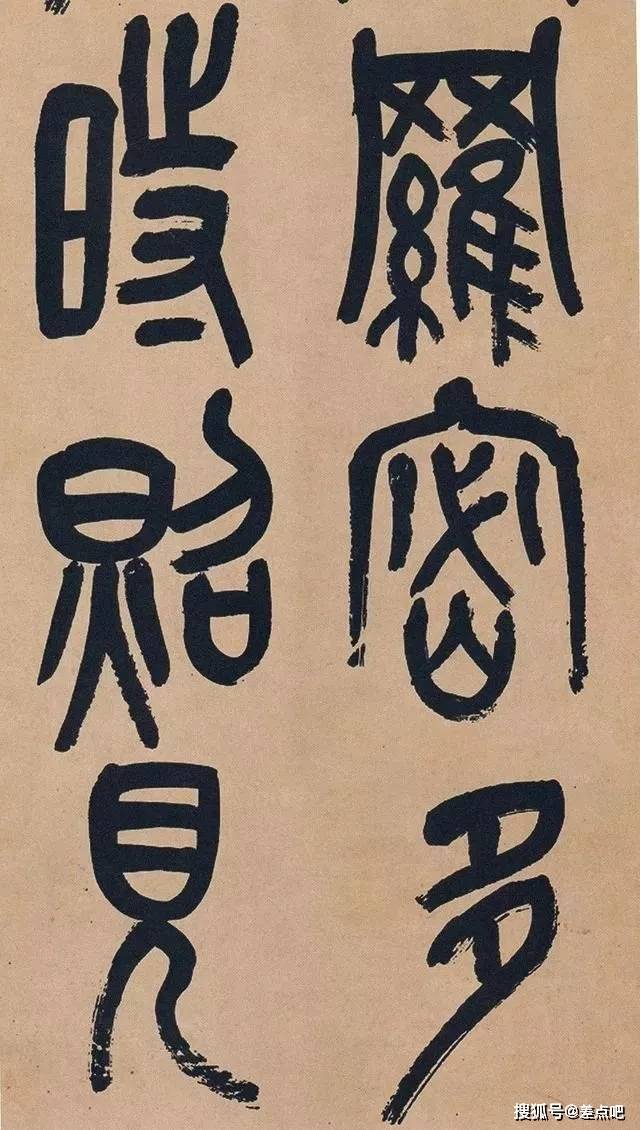 羅密多
時照見
搜狐号@差点吧